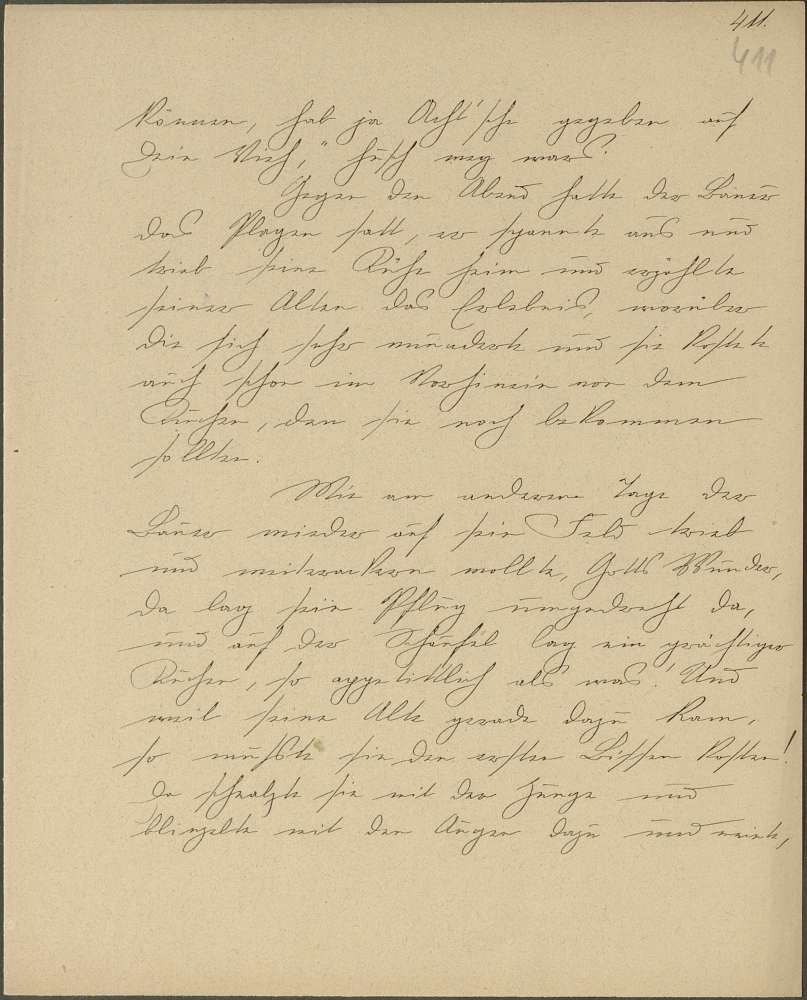 411.
411
können, hab ja Acht'sche gegeben auf
Dein Vieh," husch weg wars.
Gegen den Abend hatte der Bauer
das Plagen satt, er spannte aus und
trieb seine Kühe heim und erzählte
seiner Alten das Erlebnis, worüber
die sich sehr wunderte und sie kostete
auch schon im Vorhinein von dem
Kuchen, den sie noch bekommen
sollten.
Wie am anderen Tage der
Bauer wieder auf sein Feld trieb
und weiterackern wollte, Gotts Wunder,
da lag sein Pflug umgedreht da,
und auf der Schaufel lag ein prächtiger
Kuchen, so appetittlich als was! Und
weil seine Alte gerade dazu kam,
so mußte sie den ersten Bissen kosten!
Da schnalzte sie mit der Zunge und
blinzelte mit den Augen dazu und meinte,